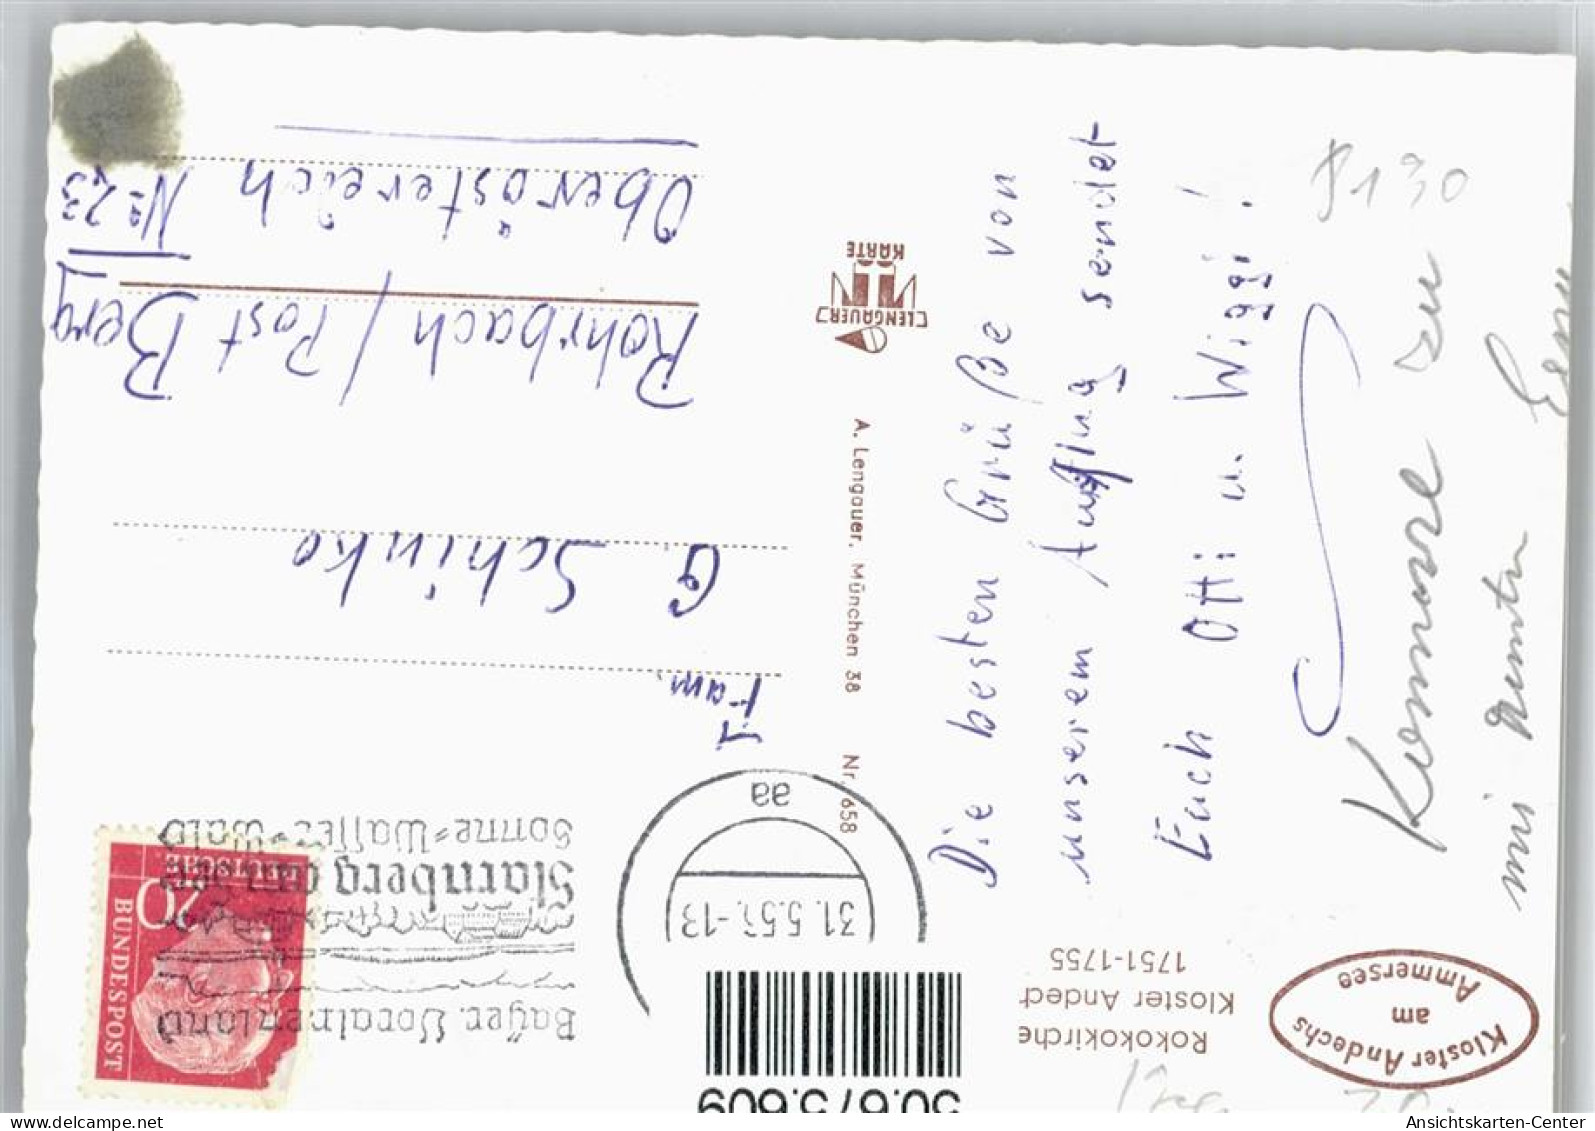 Rokokokirche
Kloster Andech
1751-1755
Kloster Andechs
am
Ammersee
50.675.609
Bayer. Voralpenland
Starnberg am See
Sonne=Wasser=Wald
31.5.5
-13
aa
DEUTSCHE
BUNDESPOST
20
Die besten Grüße von
unserem Ausflug sendet
Euch Otti u. Wiggi!
Komme zu
mi
8130
Fam.
G. Schinko
Rohrbach / Post Berg
Oberöstereich No 23
LENGAUER
KARTE
A. Lengauer, München 38 Nr. 658
Ansichtskarten-Center